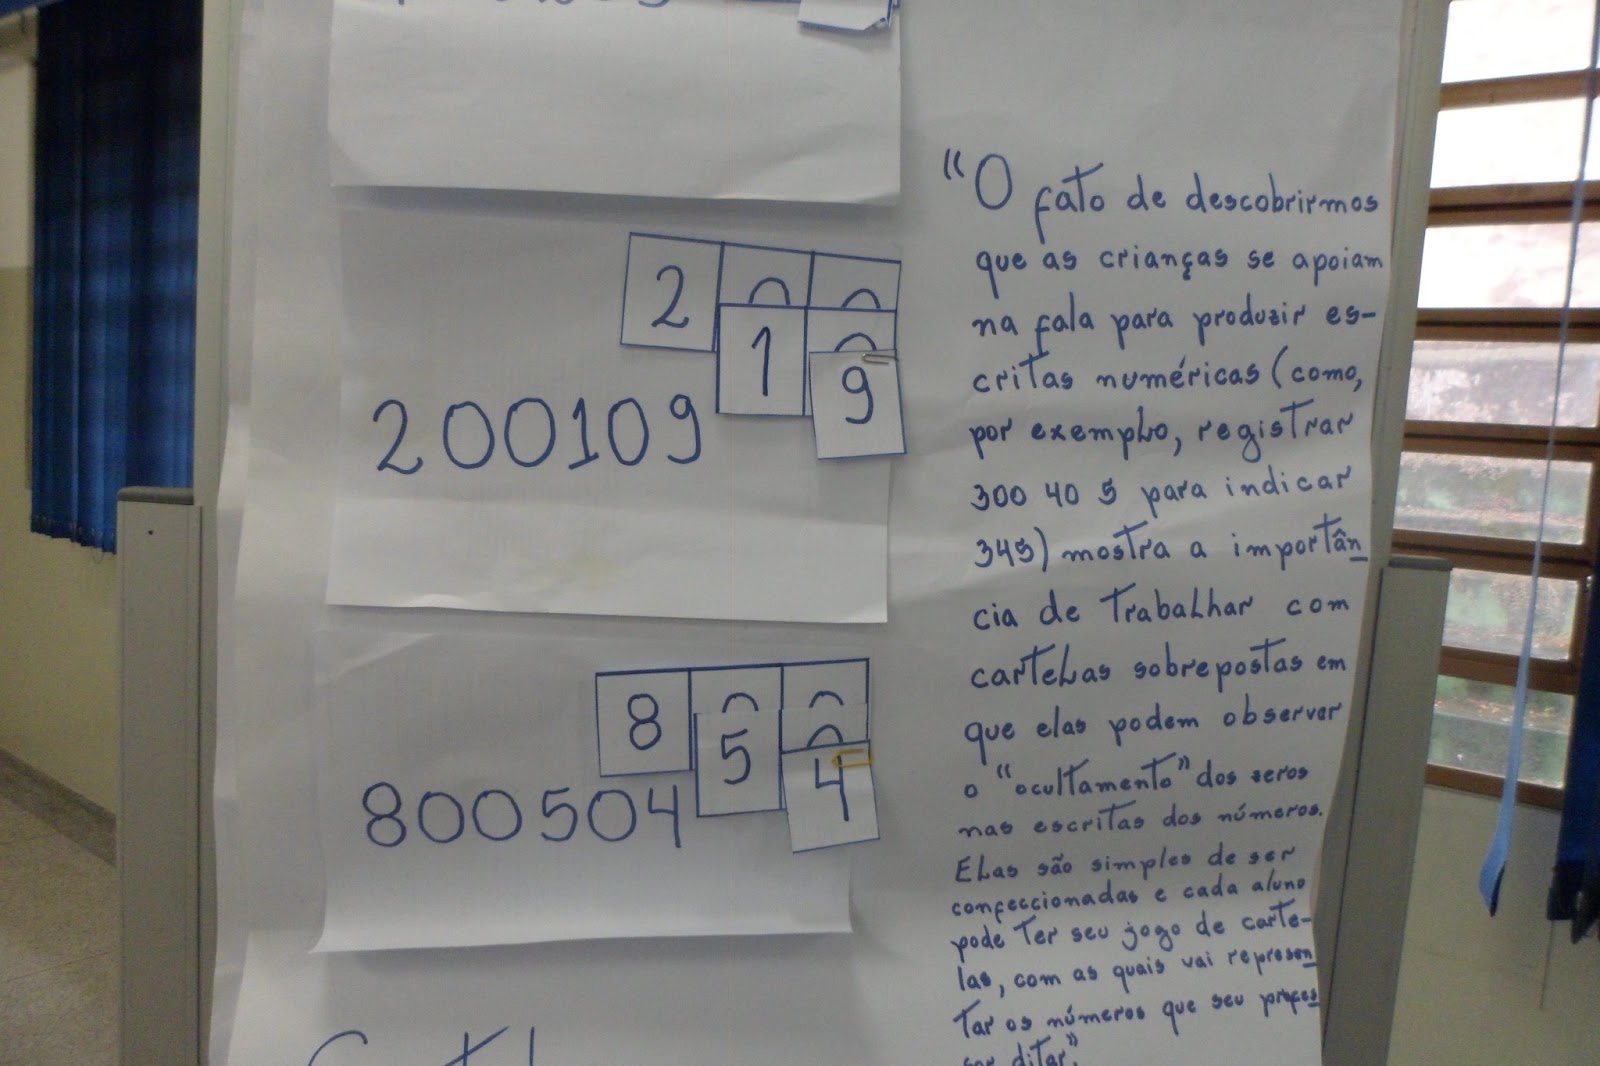 2
1
9
200109
8
5
4
800504
"O fato de descobrirmos
que as crianças se apoiam
na fala para produzir es-
critas numéricas (como,
por exemplo, registrar
300 40 5 para indicar
345) mostra a importân
cia de trabalhar com
cartelas sobrepostas em
que elas podem observar
o "ocultamento" dos zeros
nas escritas dos números.
Elas são simples de ser
confeccionadas e cada aluno
pode ter seu jogo de carte-
las, com as quais vai represen
tar os números que seu profes
sor ditar."